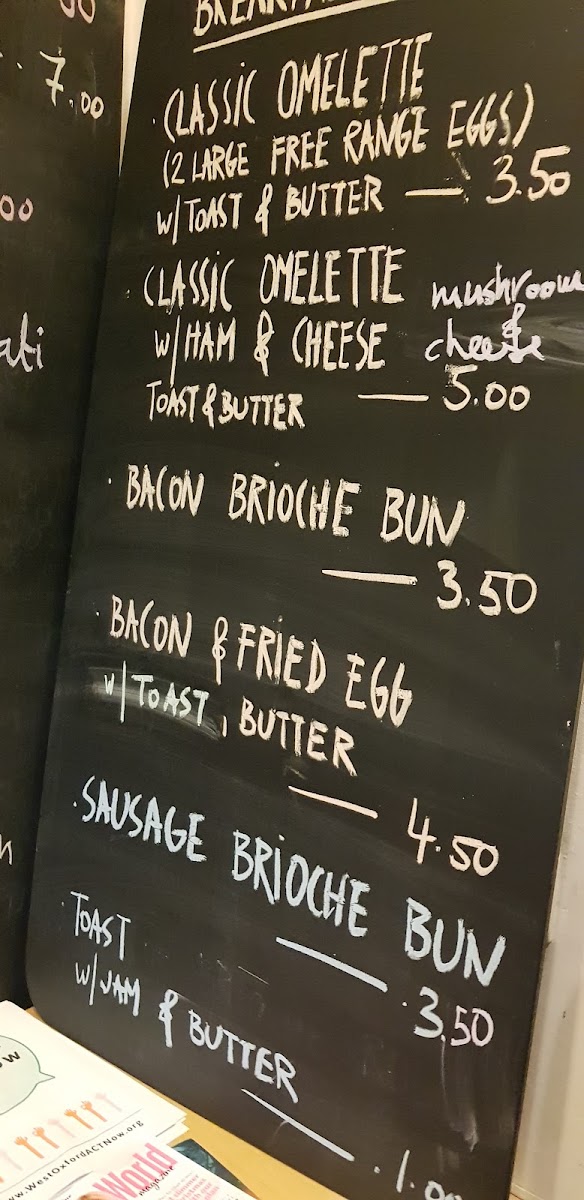 7.00
00
ati
CLASSIC OMELETTE
(2 LARGE FREE RANGE EGGS)
W/TOAST & BUTTER — 3.50
CLASSIC OMELETTE mushroom
W/HAM & CHEESE & cheese
TOAST & BUTTER — 5.00
BACON BRIOCHE BUN
— 3.50
BACON & FRIED EGG
W/TOAST, BUTTER
— 4.50
SAUSAGE BRIOCHE BUN
— 3.50
TOAST
W/JAM & BUTTER
— 1.00
www.WestOxfordACTNow.org
World